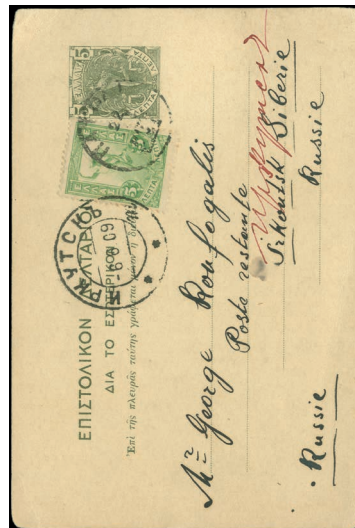 ΕΠΙΣΤΟΛΙΚΟΝ ΔΕΛΤΑΡΙΟΝ
ΔΙΑ ΤΟ ΕΣΩΤΕΡΙΚΟΝ
Ἐπὶ τῆς πλευρᾶς ταύτης γράφεται μόνον ἡ
5 ΕΛΛΑΣ 5
ΛΕΠΤΑ
ΕΛΛΑΣ
ΛΕΠΤΑ
ИРКУТСКЪ
-6 9 09
Mr George Roufogalis
Poste restante
Иркутскъ
Irkoutsk Siberie
Russie
Russie